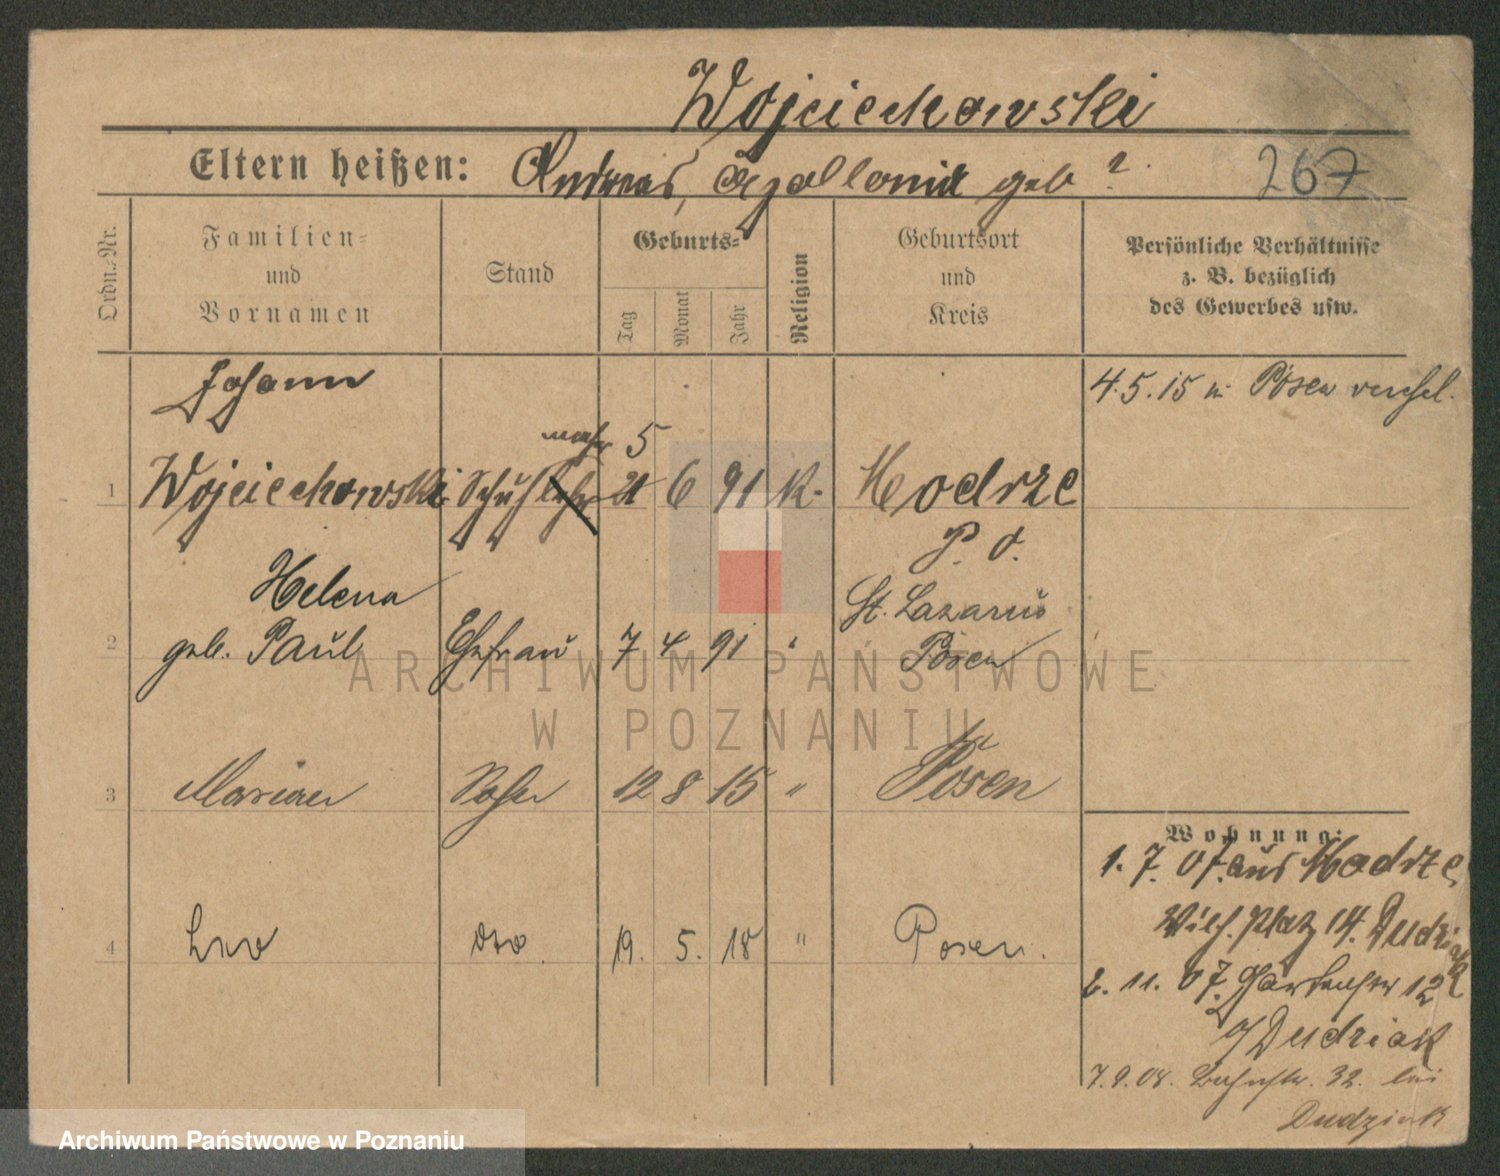 Wojciechowski
Eltern heißen: Andreas, Apollonia geb ?
267
Ordn.-Nr.
Familien-
und
Vornamen
Stand
Geburts-
Tag
Monat
Jahr
Religion
Geburtsort
und
Kreis
Persönliche Verhältnisse
z. B. bezüglich
des Gewerbes usw.
Johann
4.5.15 in Posen verehel.
macher 5
1 Wojciechowski Schuhlehr 21 6 91 K. Modrze
P. O.
Helena St. Lazarus
2 geb. Paul Ehefrau 7 4 91 " Posen
3 Marian Sohn 12 8 15 " Posen
Wohnung:
1. 7. 07. aus Modrze
Wilh. Platz 14. Dudziak
4 Leo dto. 19. 5. 18 " Posen.
2. 11. 07. Gartenstr 12
b/ Dudziak
7.9.08. 32. bei
Dudziak
ARCHIWUM PAŃSTWOWE
W POZNANIU
Archiwum Państwowe w Poznaniu